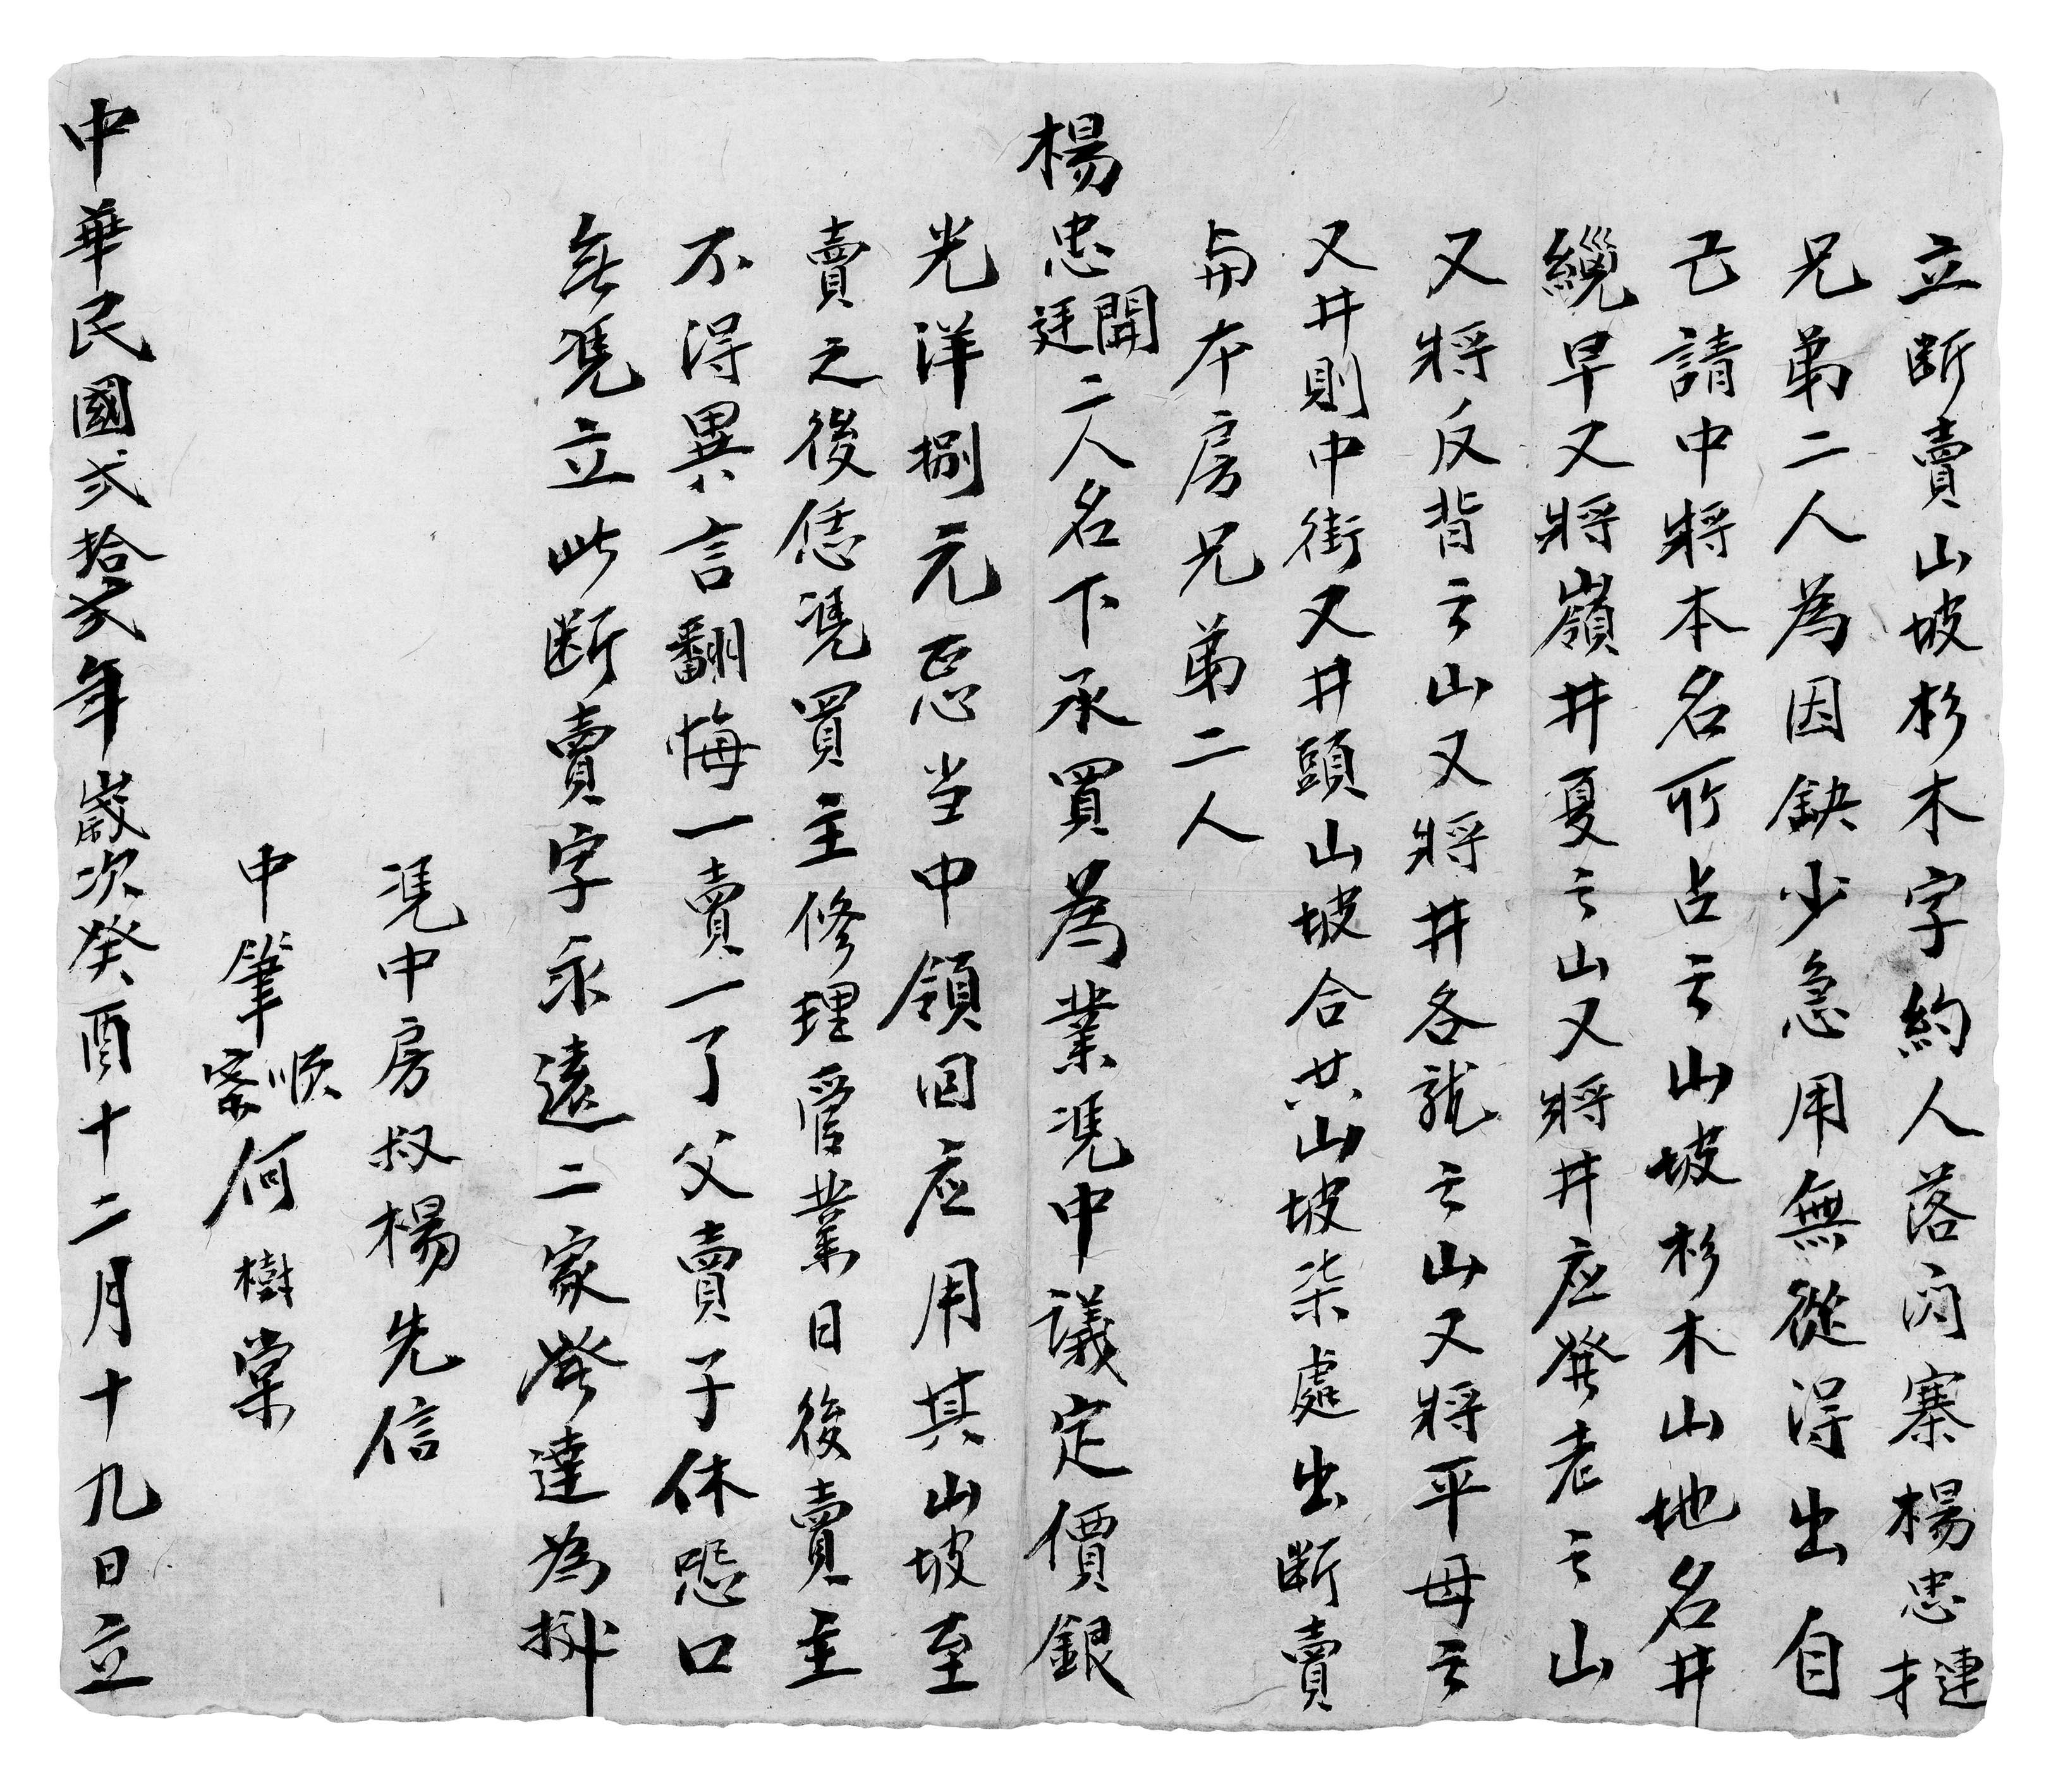 立断賣山坡杉木字約人落内寨楊忠連才
兄弟二人為因缺少急用無從得出自
己請中將本名所占云山坡杉木山地名井
早又將嶺井夏云山又將井应發老云山
又將反背云山又將井各就云山又將平母云
又井則中街又井頭山坡合共山坡柒處出断賣
與本房兄弟二人
楊忠開廷二人名下承買為業凴中議定價銀
光洋捌元忢当中領回应用其山坡至
賣之後恁凴買主修理管業日後賣主
不得異言翻悔一賣一了父賣子休怨口
無凴立此断賣字永遠二家發達為掛
凴中房叔楊先信
中筆順寨何樹棠
中華民國弍拾弍年歲次癸酉十二月十九日立